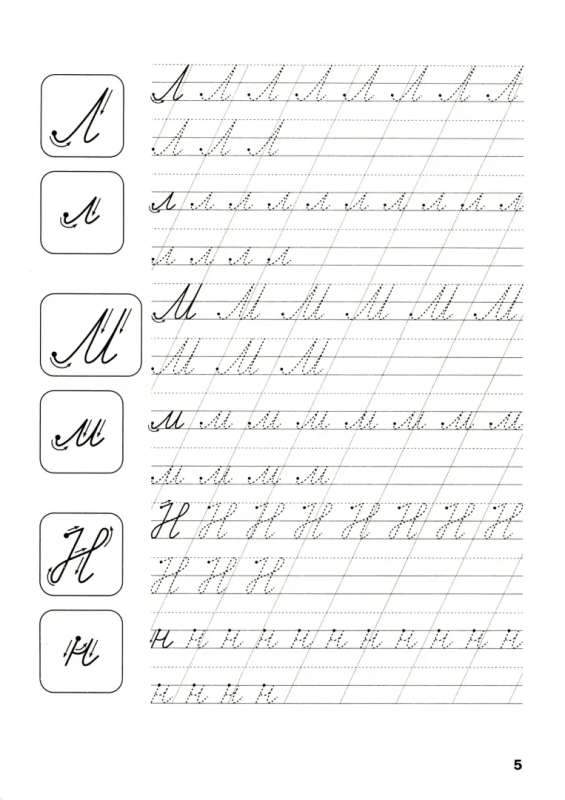 Л
Л Л Л Л Л Л Л Л
Л Л Л
л
л л л л л л л л л л
л л л л
М
М М М М М М
М М М
м
м м м м м м м м
м м м м
Н
Н Н Н Н Н Н Н Н
Н Н Н
н
н н н н н н н н н н н
н н н н
5